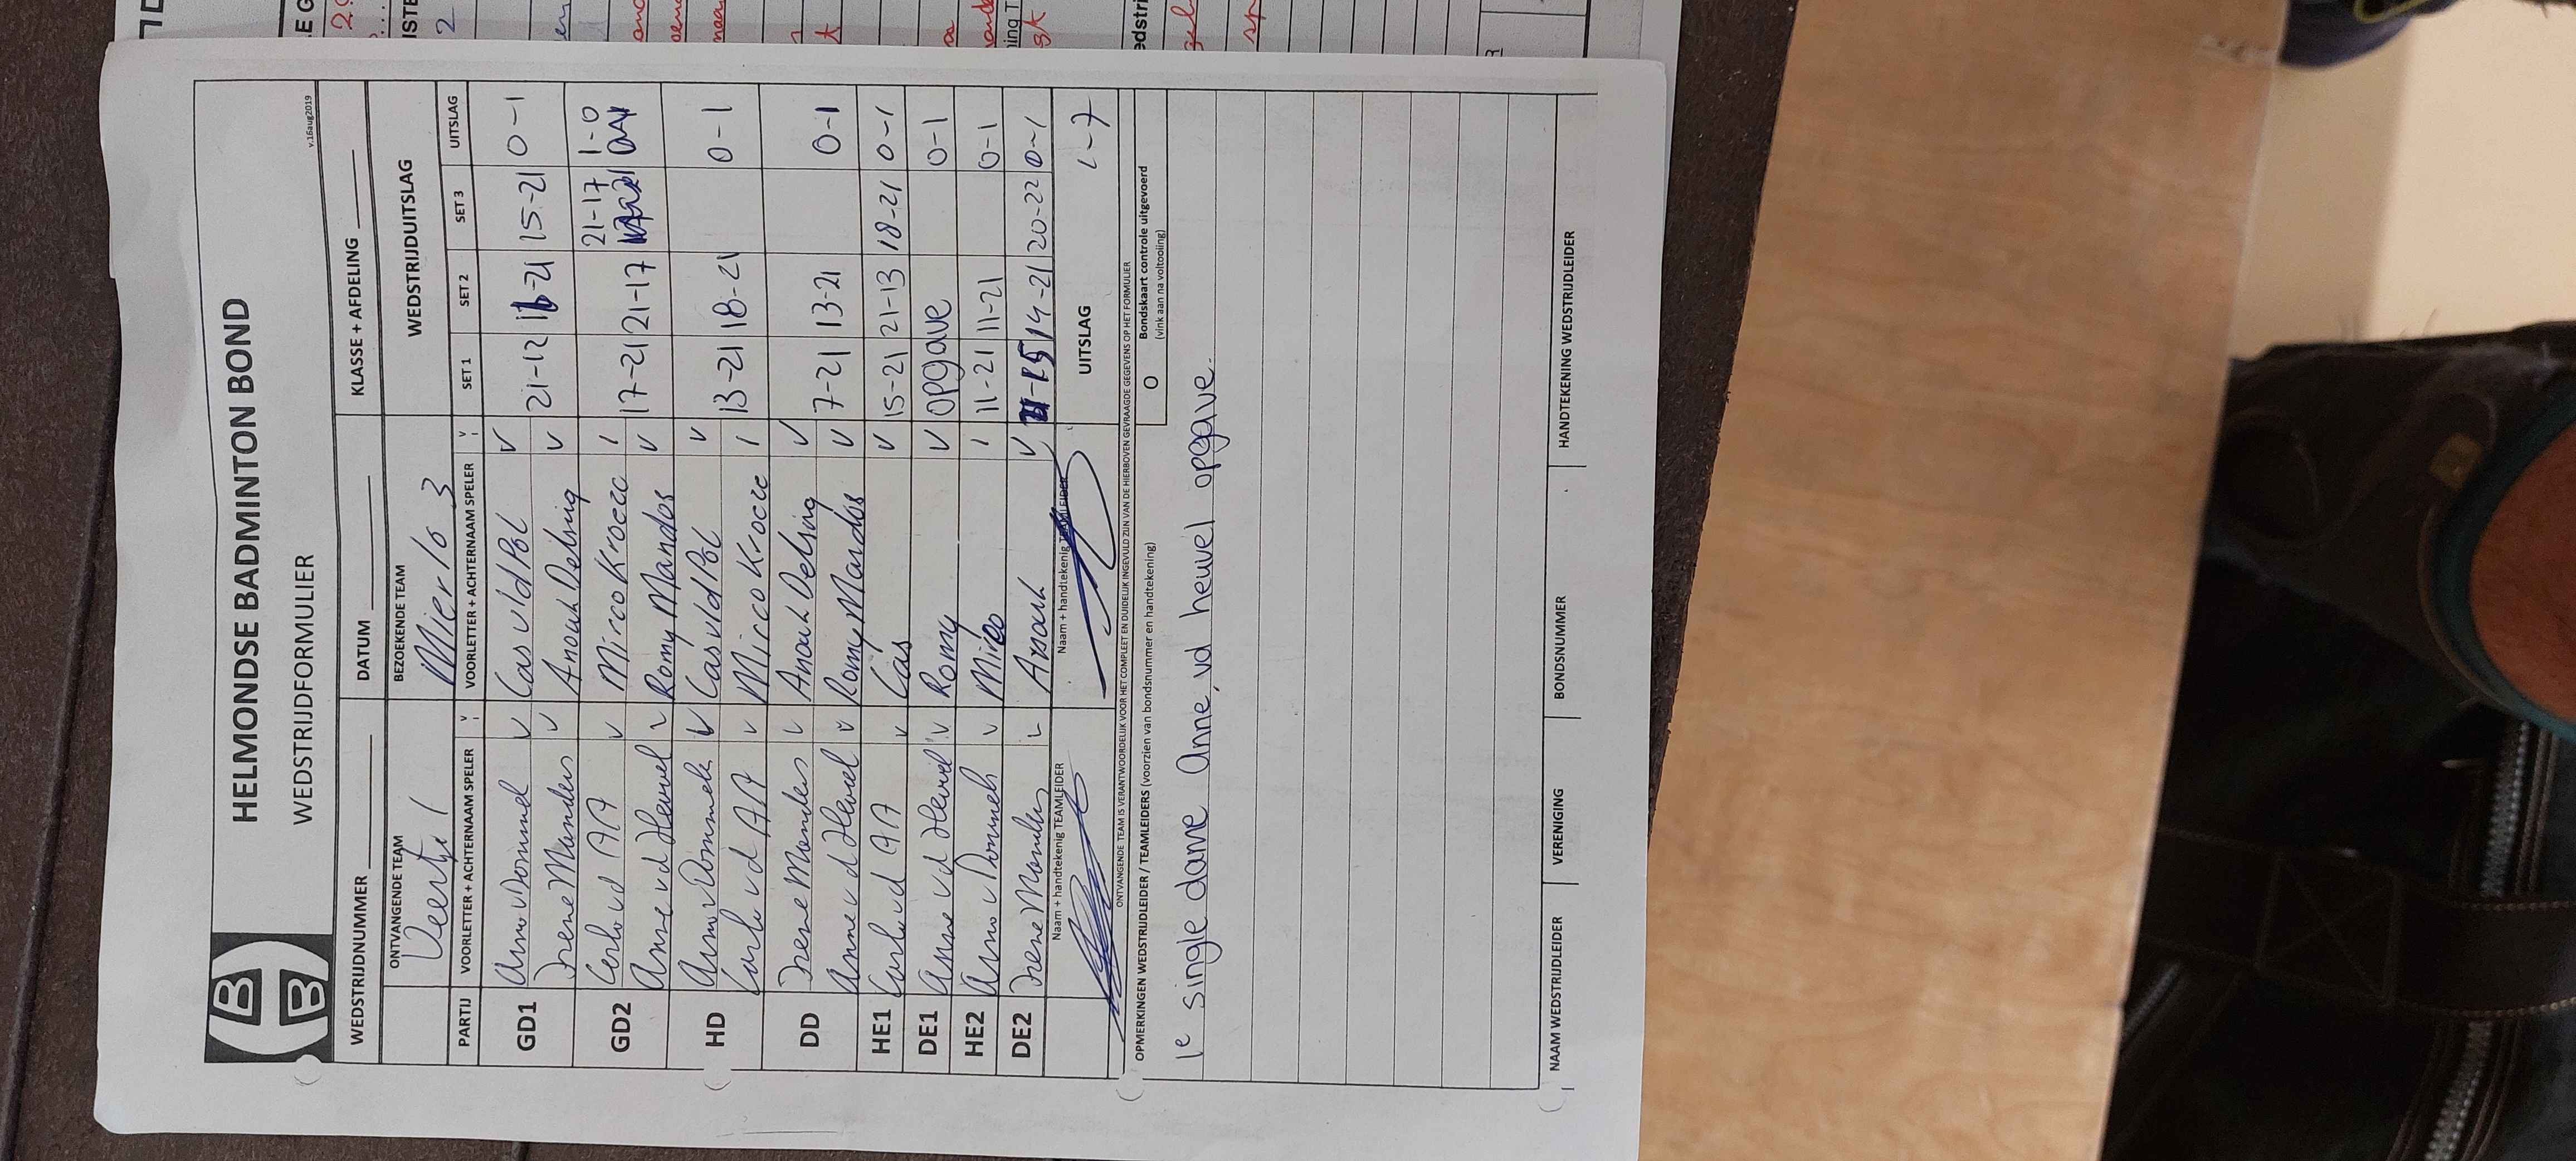 HELMONDSE BADMINTON BOND
WEDSTRIJDFORMULIER
v.16aug2019
WEDSTRIJDNUMMER DATUM KLASSE + AFDELING
ONTVANGENDE TEAM BEZOEKENDE TEAM WEDSTRIJDUITSLAG
1 Mierlo 3
PARTIJ VOORLETTER + ACHTERNAAM SPELER V VOORLETTER + ACHTERNAAM SPELER V SET 1 SET 2 SET 3 UITSLAG
GD1 Arno v Dommel v Cas v/d Pol v
Irene Manders v Anouk Delsing v 21-12 16-21 15-21 0-1
GD2 v/d AA v Mirco Kroeze / 21-17 1-0
Anne vd Heuvel v Romy Mandos v 17-21 21-17
HD Arno v Dommeln v Cas v/d Pol v
vd AA v Mirco Kroeze / 13-21 18-21 0-1
DD Irene Manders v Anouk Delsing v
Anne vd Heuvel v Romy Mandos v 7-21 13-21 0-1
HE1 vd AA v Cas v 15-21 21-13 18-21 0-1
DE1 Anne vd Heuvel v Romy v opgave 0-1
HE2 Arno v Dommeln v Mirco / 11-21 11-21 0-1
DE2 Irene Manders v Anouk v 21-15 14-21 20-22 0-1
Naam + handtekenig TEAMLEIDER Naam + handtekenig TEAMLEIDER UITSLAG 1-7
ONTVANGENDE TEAM IS VERANTWOORDELIJK VOOR HET COMPLEET EN DUIDELIJK INGEVULD ZIJN VAN DE HIERBOVEN GEVRAAGDE GEGEVENS OP HET FORMULIER
OPMERKINGEN WEDSTRIJDLEIDER / TEAMLEIDERS (voorzien van bondsnummer en handtekening) O Bondskaart controle uitgevoerd
(vink aan na voltooiing)
1e single dame Anne vd heuvel opgave.
NAAM WEDSTRIJDLEIDER VERENIGING BONDSNUMMER HANDTEKENING WEDSTRIJDLEIDER